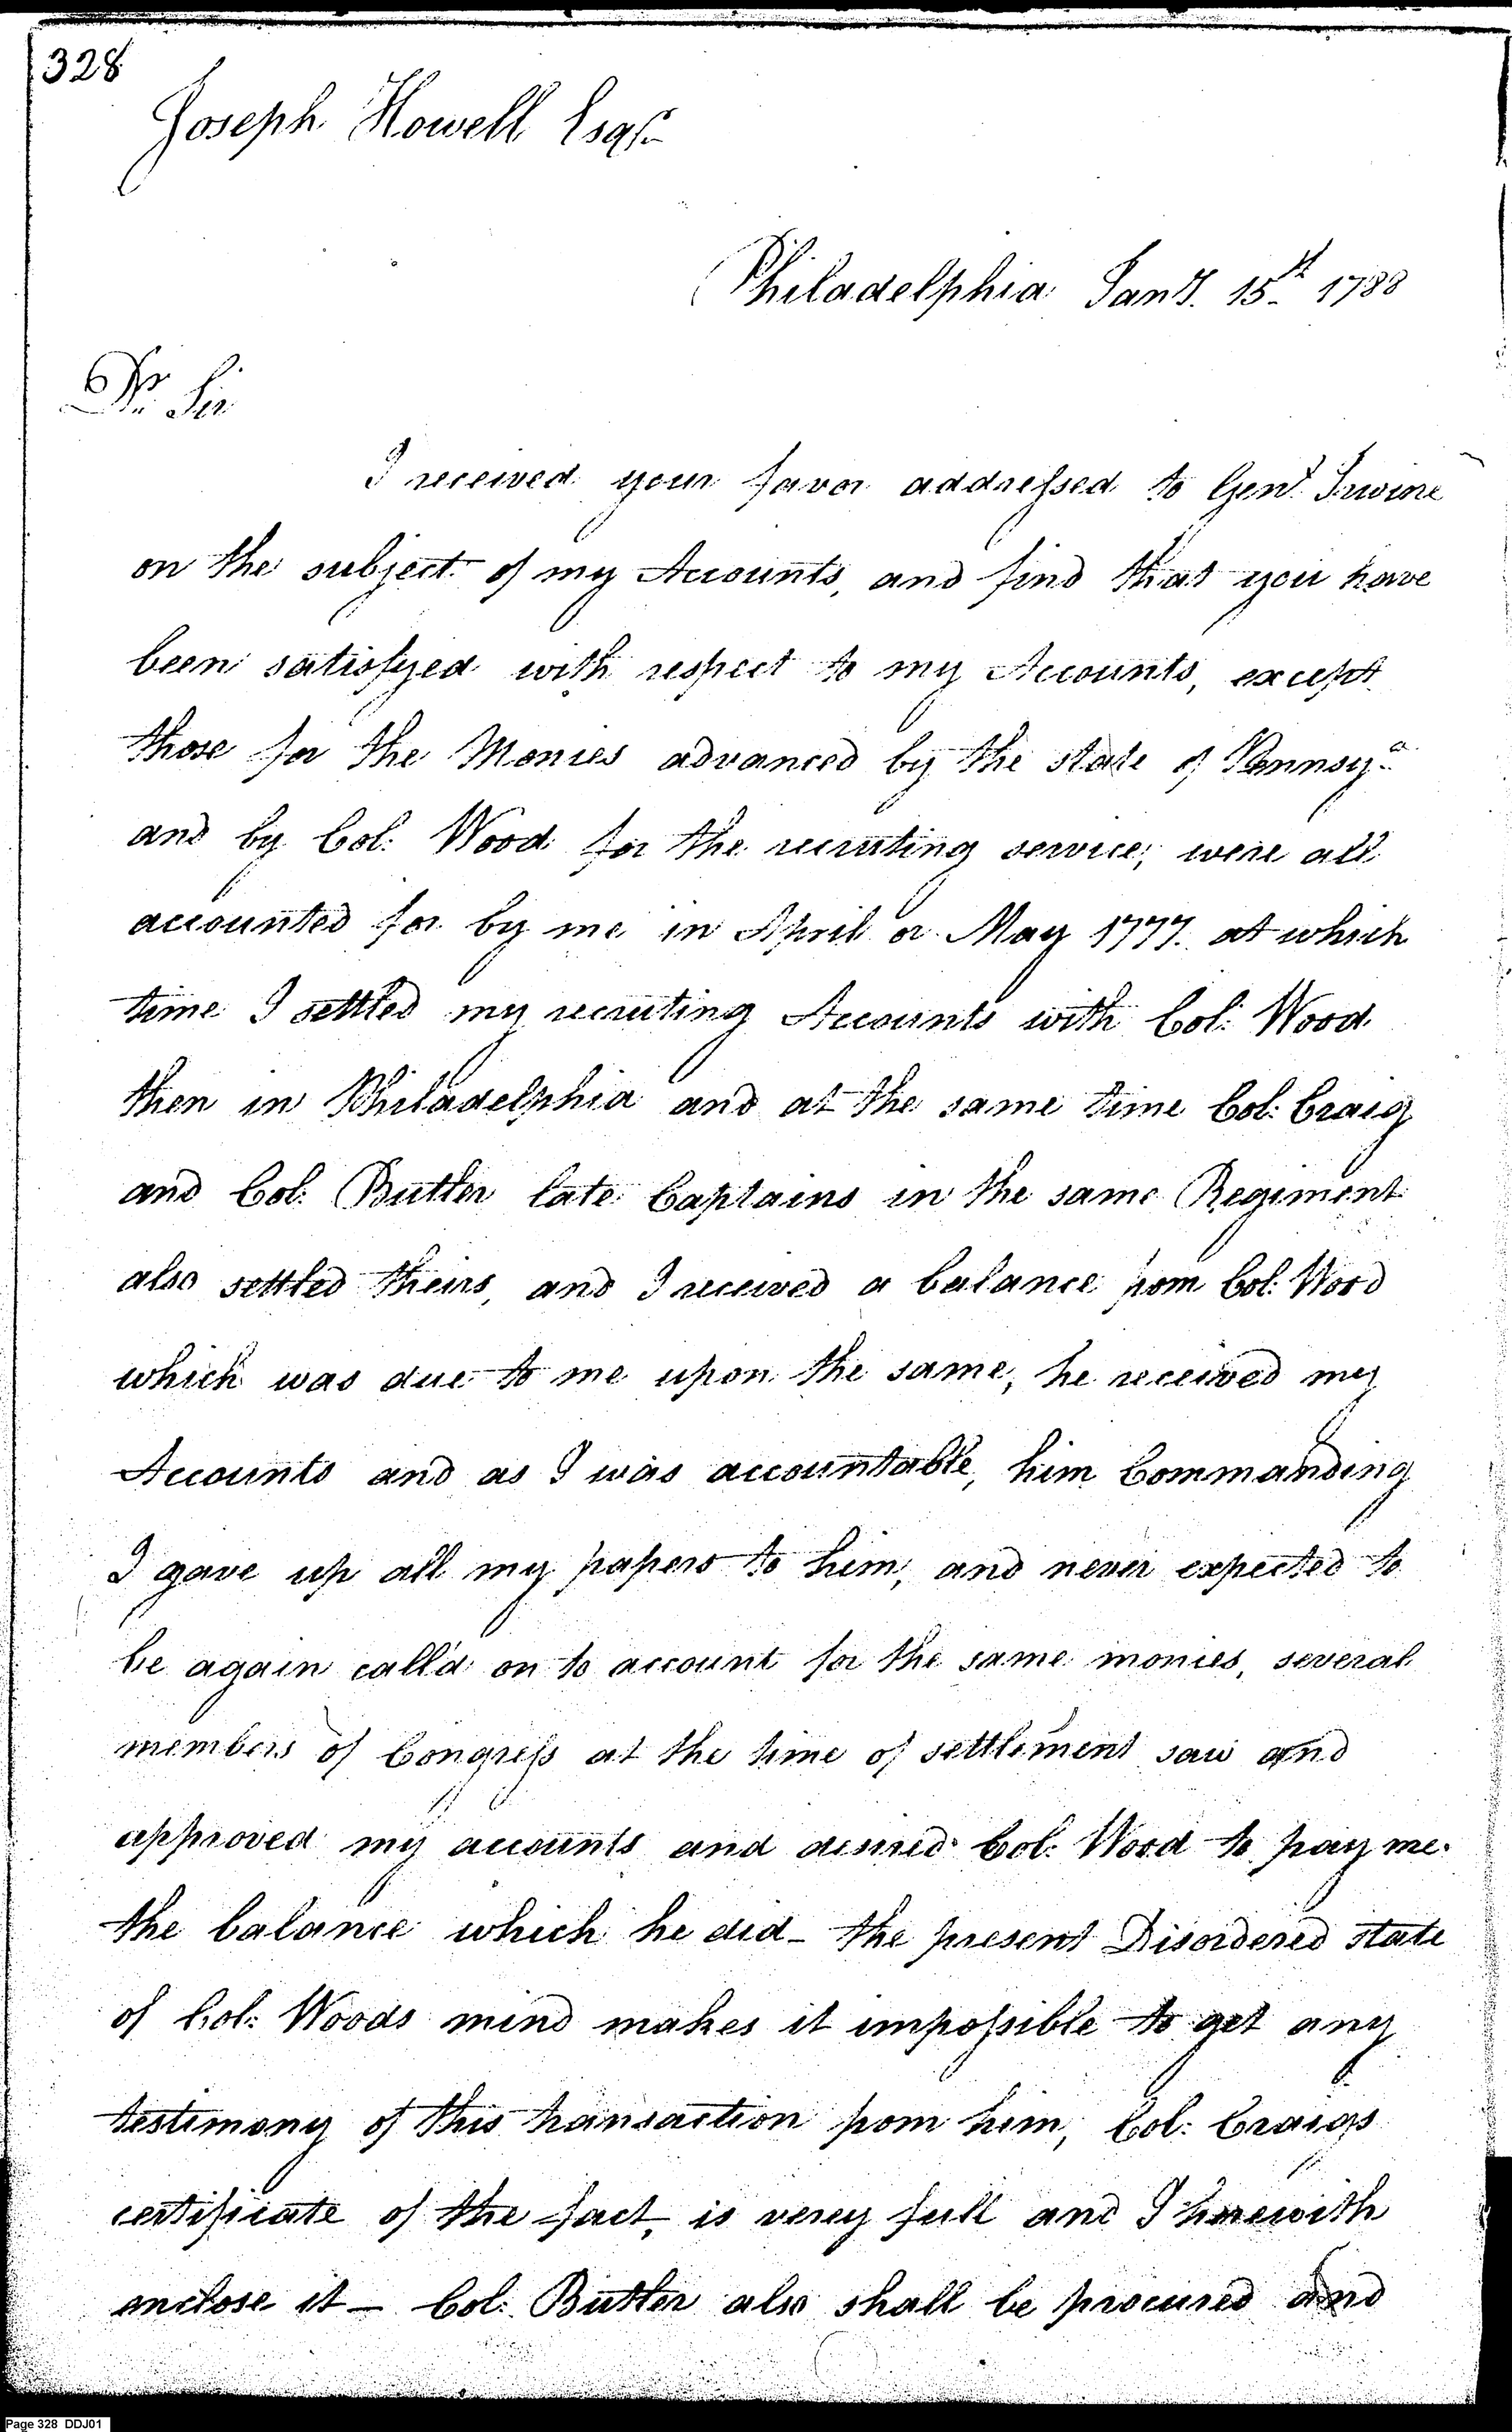 328
Joseph Howell Esqr.
Philadelphia Jany. 15th 1788
Dr. Sir
I received your favor addressed to Genl. Irwine
on the subject of my Accounts, and find that you have
been satisfyed with respect to my Accounts, except
those for the Monies advanced by the state of Pennsya.
and by Col: Wood for the recruting service, were all
accounted for by me in April or May 1777. at which
time I settled my recruting Accounts with Col: Wood
then in Philadelphia and at the same time Col: Craig
and Col: Butler late Captains in the same Regiment
also settled theirs, and I received a balance from Col: Wood
which was due to me upon the same, he received my
Accounts and as I was accountable, him Commanding
I gave up all my papers to him, and never expected to
be again call'd on to account for the same monies, several
members of Congress at the time of settlement saw and
approved my accounts and desired Col: Wood to pay me
the balance which he did - the present Disordered state
of Col: Woods mind makes it impossible to get any
testimony of this transaction from him, Col: Craigs
certificate of the fact, is verey full and I herewith
enclose it - Col: Butler also shall be procured and
Page 328 DDJ01